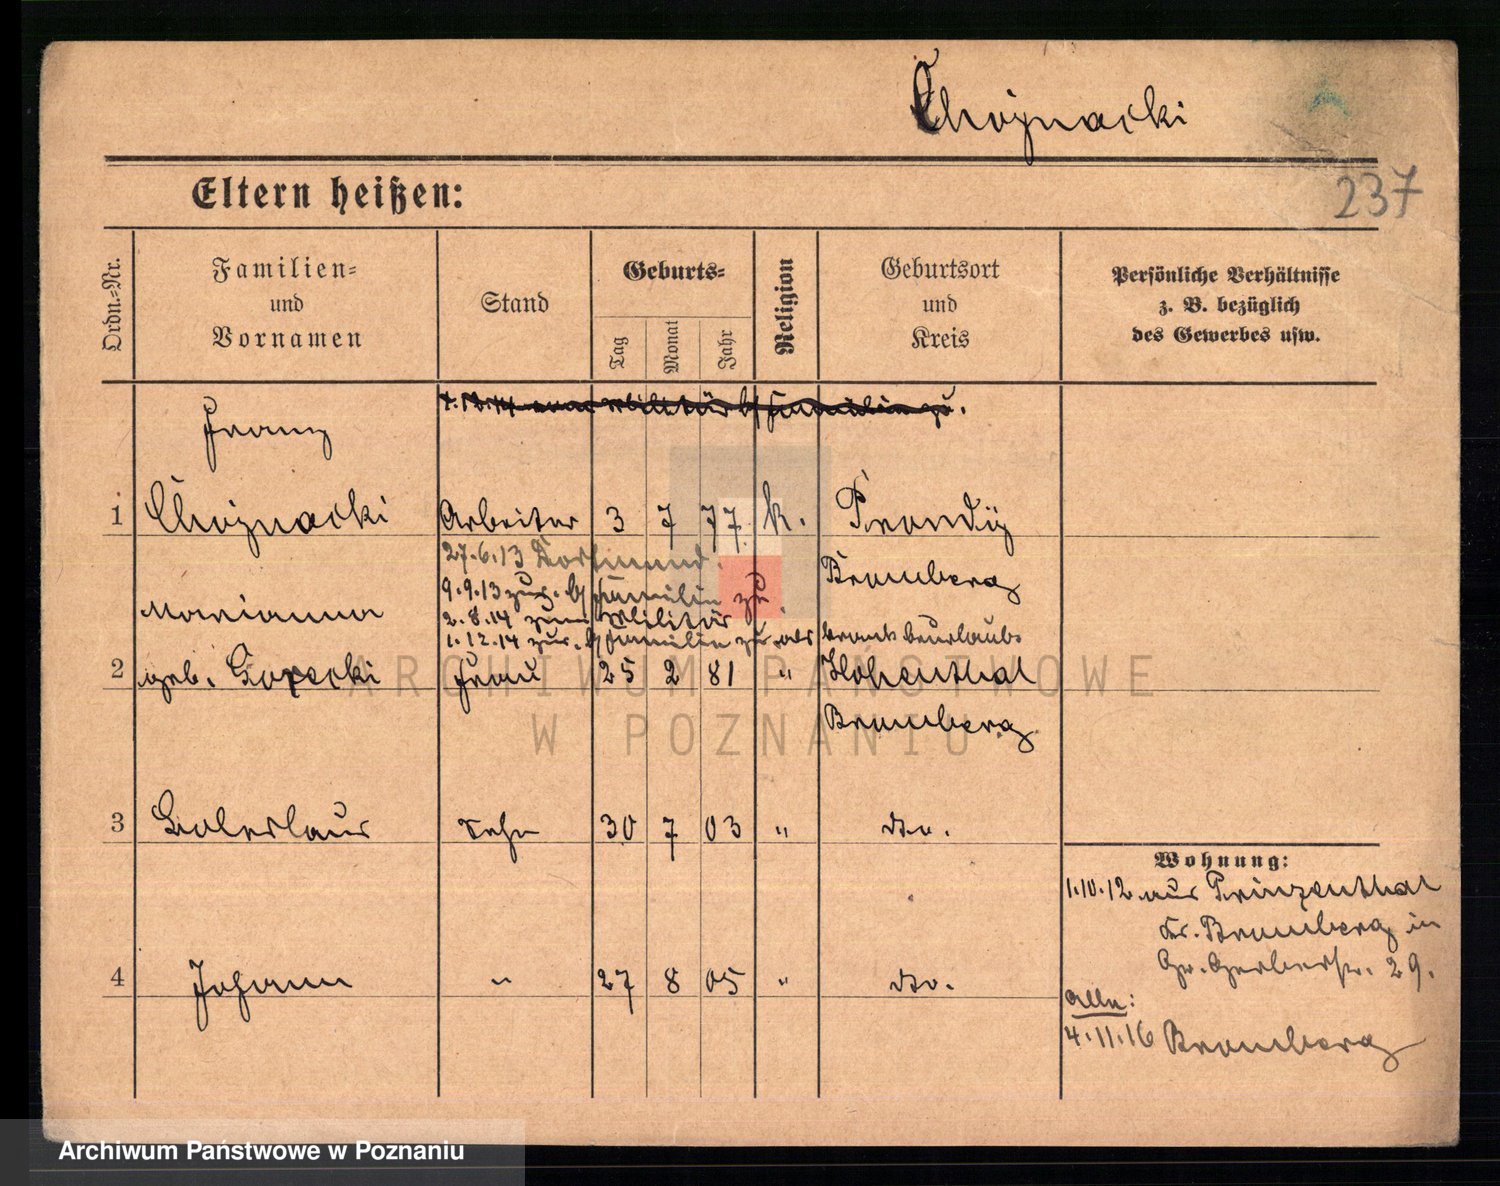 Chojnacki
237
Eltern heißen:
Ordn.-Nr.
Familien-
und
Vornamen
Stand
Geburts-
Tag
Monat
Jahr
Religion
Geburtsort
und
Kreis
Persönliche Verhältnisse
z. B. bezüglich
des Gewerbes usw.
Franz
1 Chojnacki Arbeiter 3 7 77. k. Prondy
27.6.13 Dortmund.
Bromberg
9.9.13 zug. b/ Familie zu.
Marianna
2.8.14 zum Militär
1.12.14 zur. b/ Familie zu. als krank beurlaubt
2 geb. Gorecki Frau 25 2 81 " Hohenthal
Bromberg
3 Sohn 30 7 03 " do.
4 Johann " 27 8 05 " do.
Wohnung:
1.10.12 aus Prinzenthal
Kr. Bromberg in
Gr. Gerberstr. 29.
alle:
4.11.16 Bromberg
ARCHIWUM PAŃSTWOWE
W POZNANIU
Archiwum Państwowe w Poznaniu